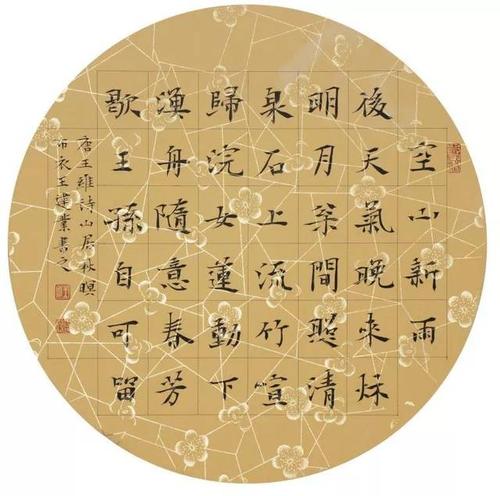 空山新雨
後天氣晚來秌
明月枀間照清
泉石上流竹喧
歸浣女蓮動下
漁舟隨意春芳
歇王孫自可留
唐王維詩山居秋暝
布衣王建業書之